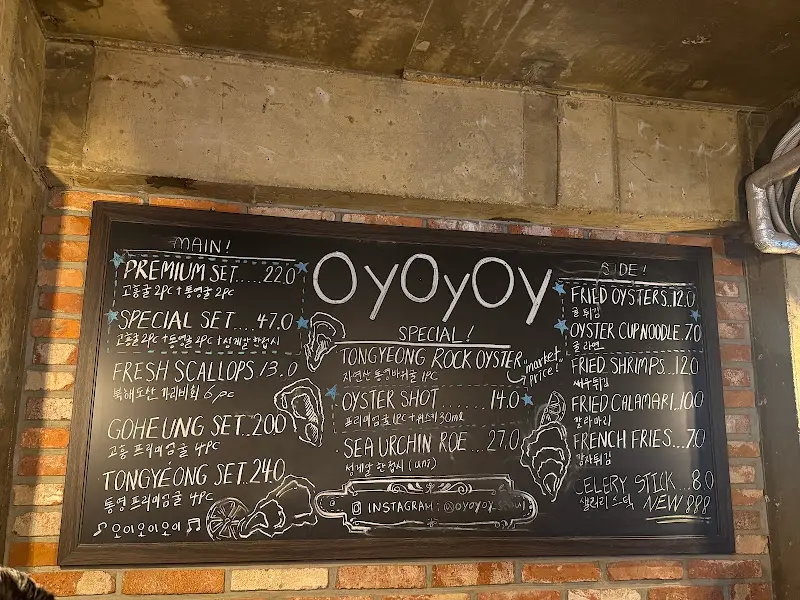 MAIN!
PREMIUM SET...22.0
고흥굴 2PC + 통영굴 2PC
SPECIAL SET....47.0
고흥굴 2PC + 통영굴 2PC + 성게알 한접시
FRESH SCALLOPS 13.0
북해도산 가리비회 6pc
GOHEUNG SET..20.0
고흥 프리미엄굴 4PC
TONGYEONG SET.24.0
통영 프리미엄굴 4PC
오이오이오이
OyOyOy
SPECIAL!
TONGYEONG ROCK OYSTER
자연산 통영바위굴 1PC
"market price!"
OYSTER SHOT........14.0
프리미엄굴 1PC + 위스키 30ml
SEA URCHIN ROE...27.0
성게알 한접시 (uni)
INSTAGRAM: @oyoyoy_seoul
SIDE!
FRIED OYSTERS..12.0
굴 튀김
OYSTER CUPNOODLE.7.0
굴 라면
FRIED SHRIMPS...12.0
새우튀김
FRIED CALAMARI..10.0
칼라마리
FRENCH FRIES...7.0
감자튀김
CELERY STICK...8.0
샐러리 스틱
NEW 888